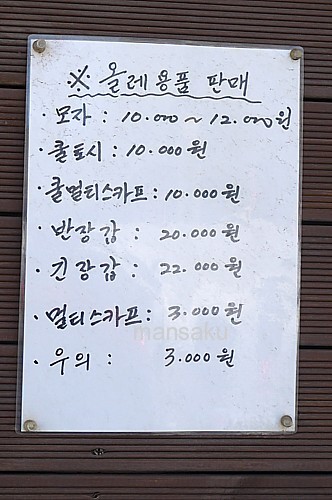 ※ 올레용품 판매
· 모자 : 10.000 ~ 12.000원
· 쿨토시 : 10.000원
· 쿨멀티스카프 : 10.000원
· 반장갑 : 20.000원
· 긴장갑 : 22.000원
· 멀티스카프 : 3.000원
mansaku
· 우의 : 3.000원